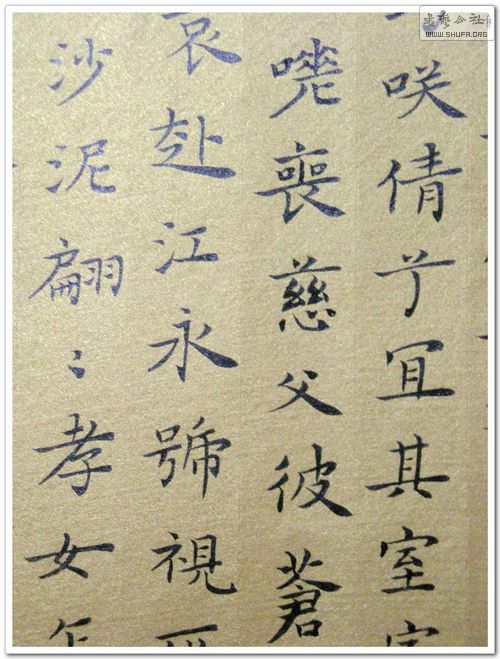 咲倩兮冝其室
嗟喪慈父彼蒼
哀赴江永號視
沙泥翩〻孝女乍
書藝公社
WWW.SHUFA.ORG